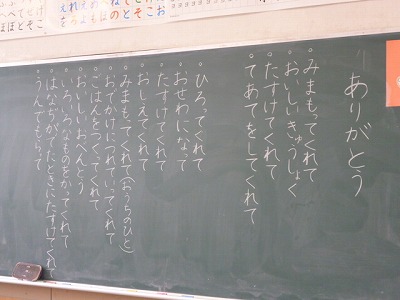 ありがとう
。みまもってくれて
。おいしいきゅうしょく
。たすけてくれて
。てあてをしてくれて
。ひろってくれて
。おせわになって
。たすけてくれて
。おしえてくれて
。みまもってくれて(おうちのひと)
。おでかけにつれていってくれて
。ごはんをつくってくれて
。おいしいおべんとう
。いろいろなものをかってくれて
。はなぢがでたときにたすけてくれ
。うんでもらって